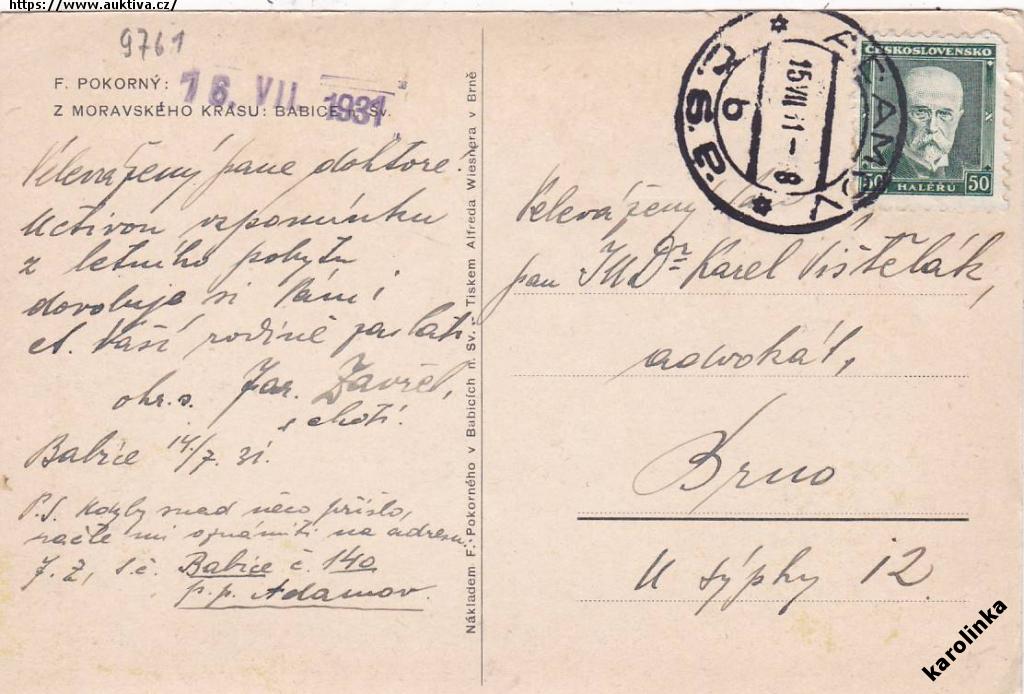 https://www.auktiva.cz/
9761
F. POKORNÝ:
Z MORAVSKÉHO KRASU: BABICE N. SV.
16. VII. 1931
Velevážený pane doktore!
Uctivou vzpomínku
z letního pobytu
dovoluje si Vám i
ct. Vaší rodině zaslati
Jar. Zavřel,
s chotí.
Babice 14/7. 31.
P.S. Kdyby snad něco přišlo,
račte mi oznámiti na adresu:
J. Z., t.č. Babice č. 140
p.p. Adamov.
Nákladem F. Pokorného v Babicích n. Sv. - Tiskem Alfreda Wiesnera v Brně
15 VII 31 - 8
b
Č.S.P.
ČESKOSLOVENSKO
50 HALÉŘŮ 50
Velevážený pan
pan JUDr Karel Vištělák,
advokát,
Brno
U sýpky 12
karolinka